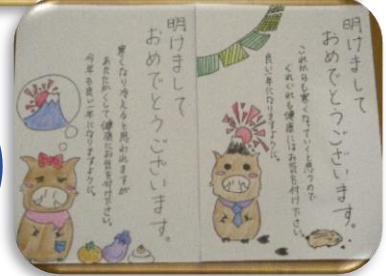 明けまして
おめでとうございます。
これからも寒くなっていくと思うので
くれぐれも健康にはお気を付け下さい。
良い年になりますように。
明けまして
おめでとうございます。
寒くなり冷えると思われますが
あたたかくして健康にお気を付け下さい。
今年も良い一年になりますように。